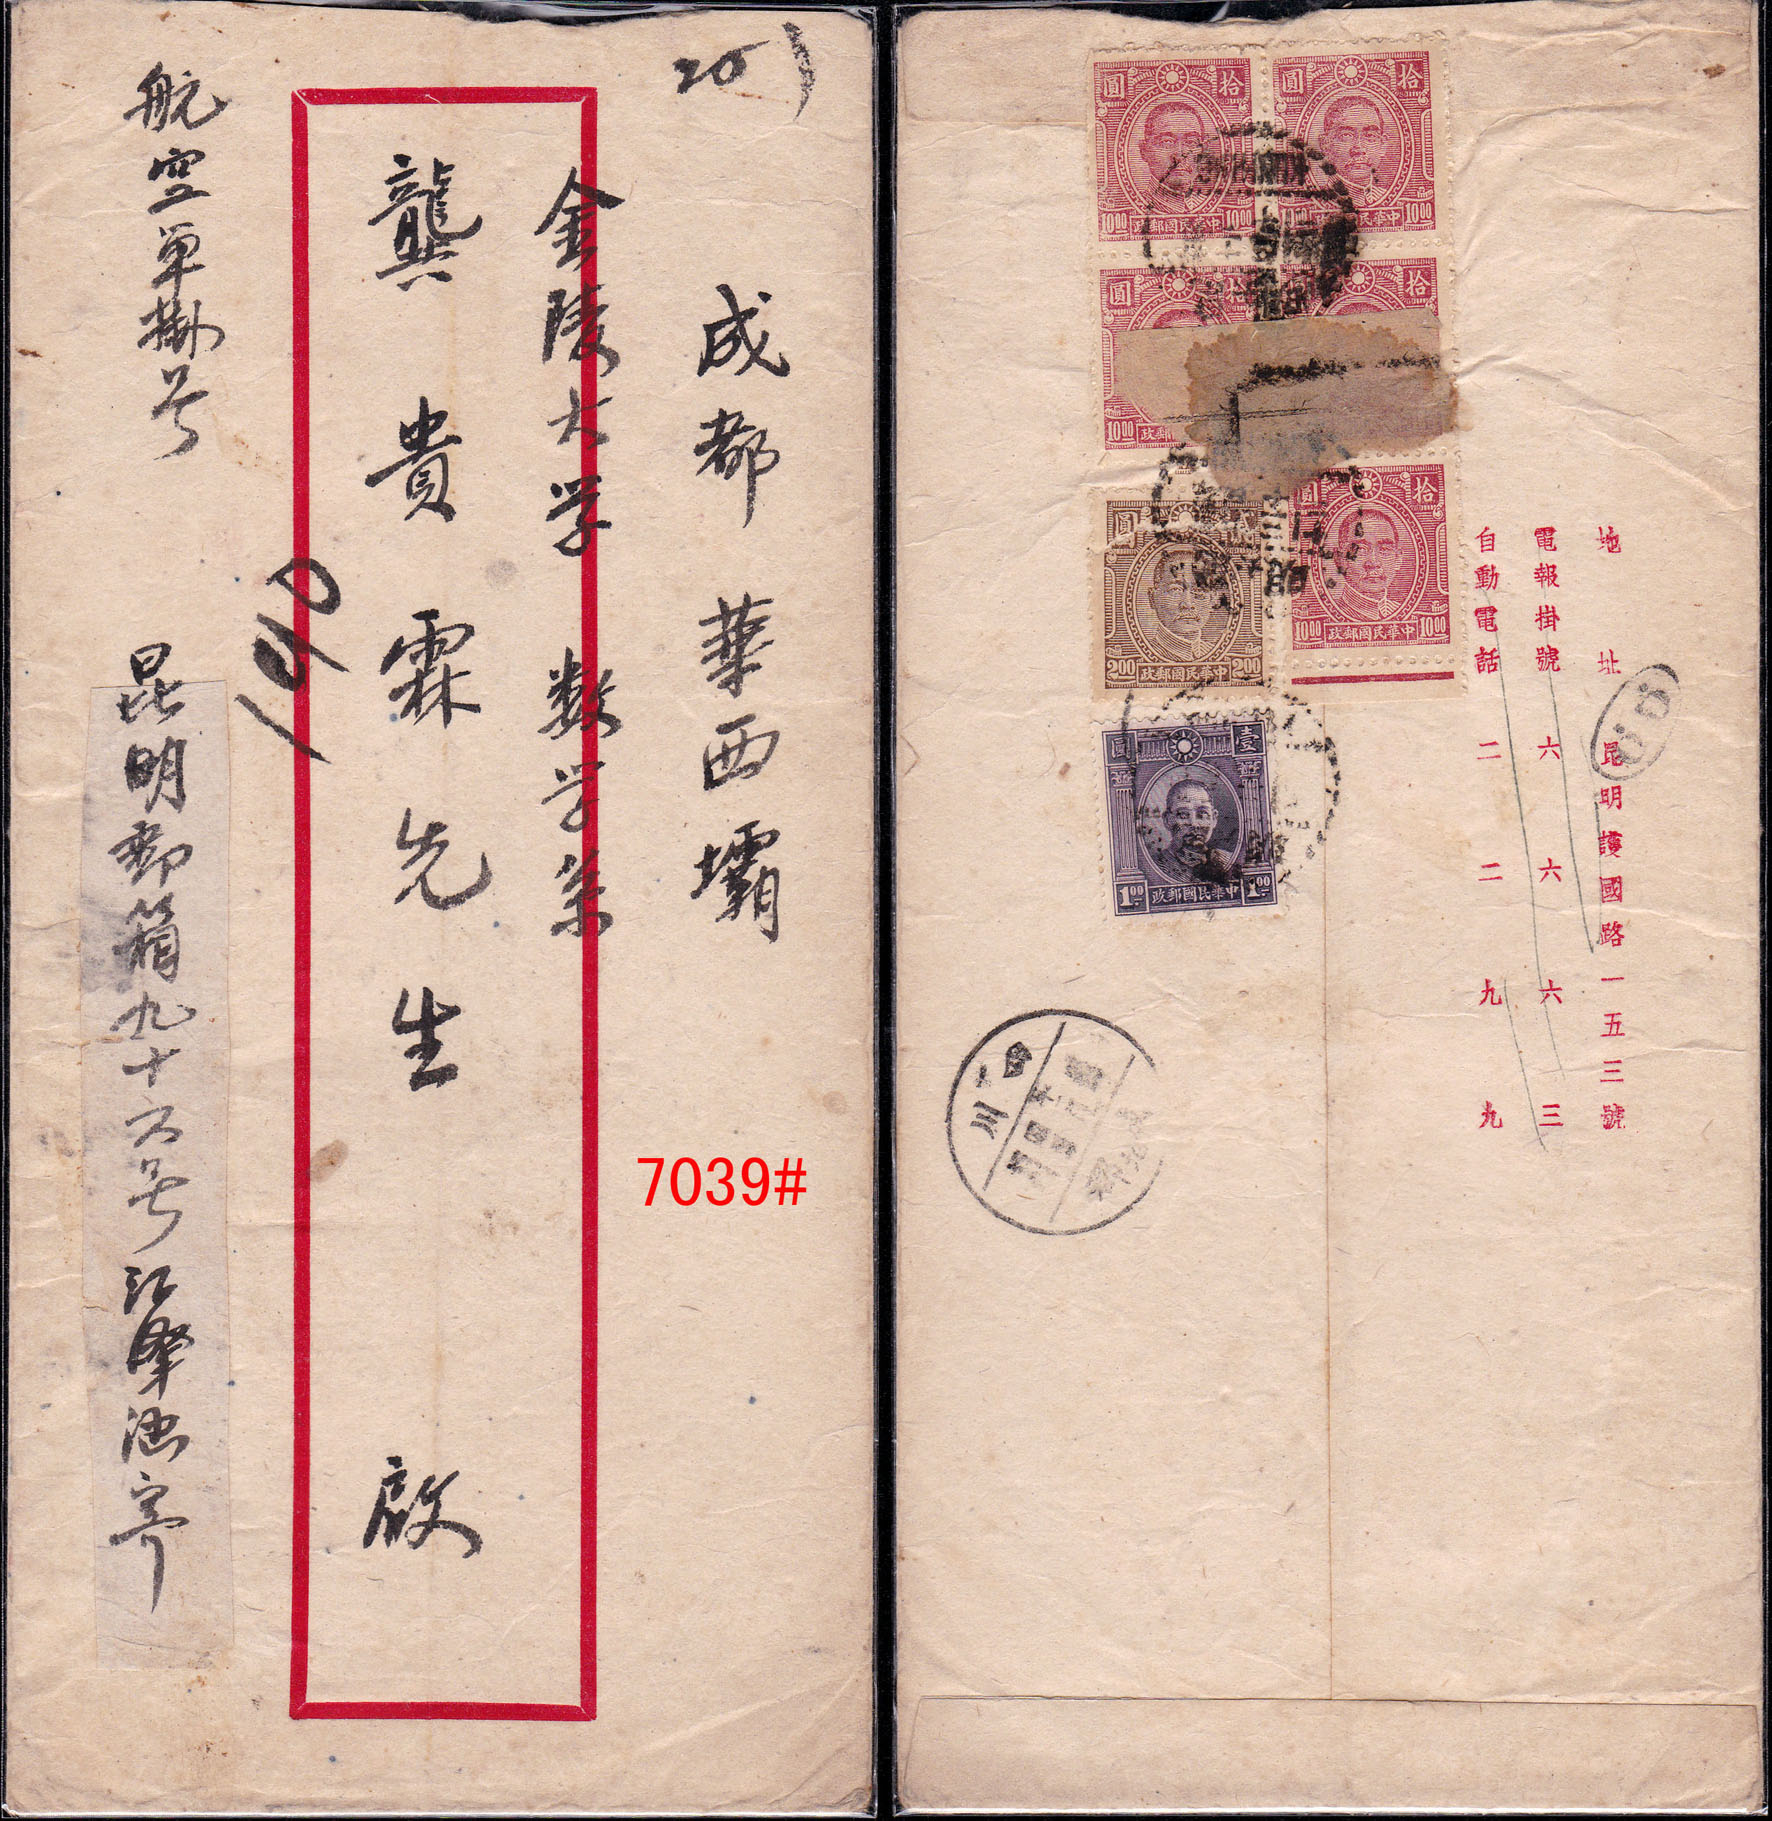 20
成都華西壩
金陵大学 数学系
龔貴霖先生 啟
140
航空單掛号
昆明郵箱九十六号江肇
寄
7039#
圓 拾
10.00 政郵國民華中 10.00
圓 拾
10.00 政郵國民華中 10.00
圓 拾
拾
10.00 政郵
圓 拾
10.00 政郵國民華中 10.00
圓
2.00 政郵國民華中 2.00
圓 壹
1.00 政郵國民華中 1.00
地址 昆明護國路一五三號
電報掛號 六六六三
自動電話 二二九九
四川